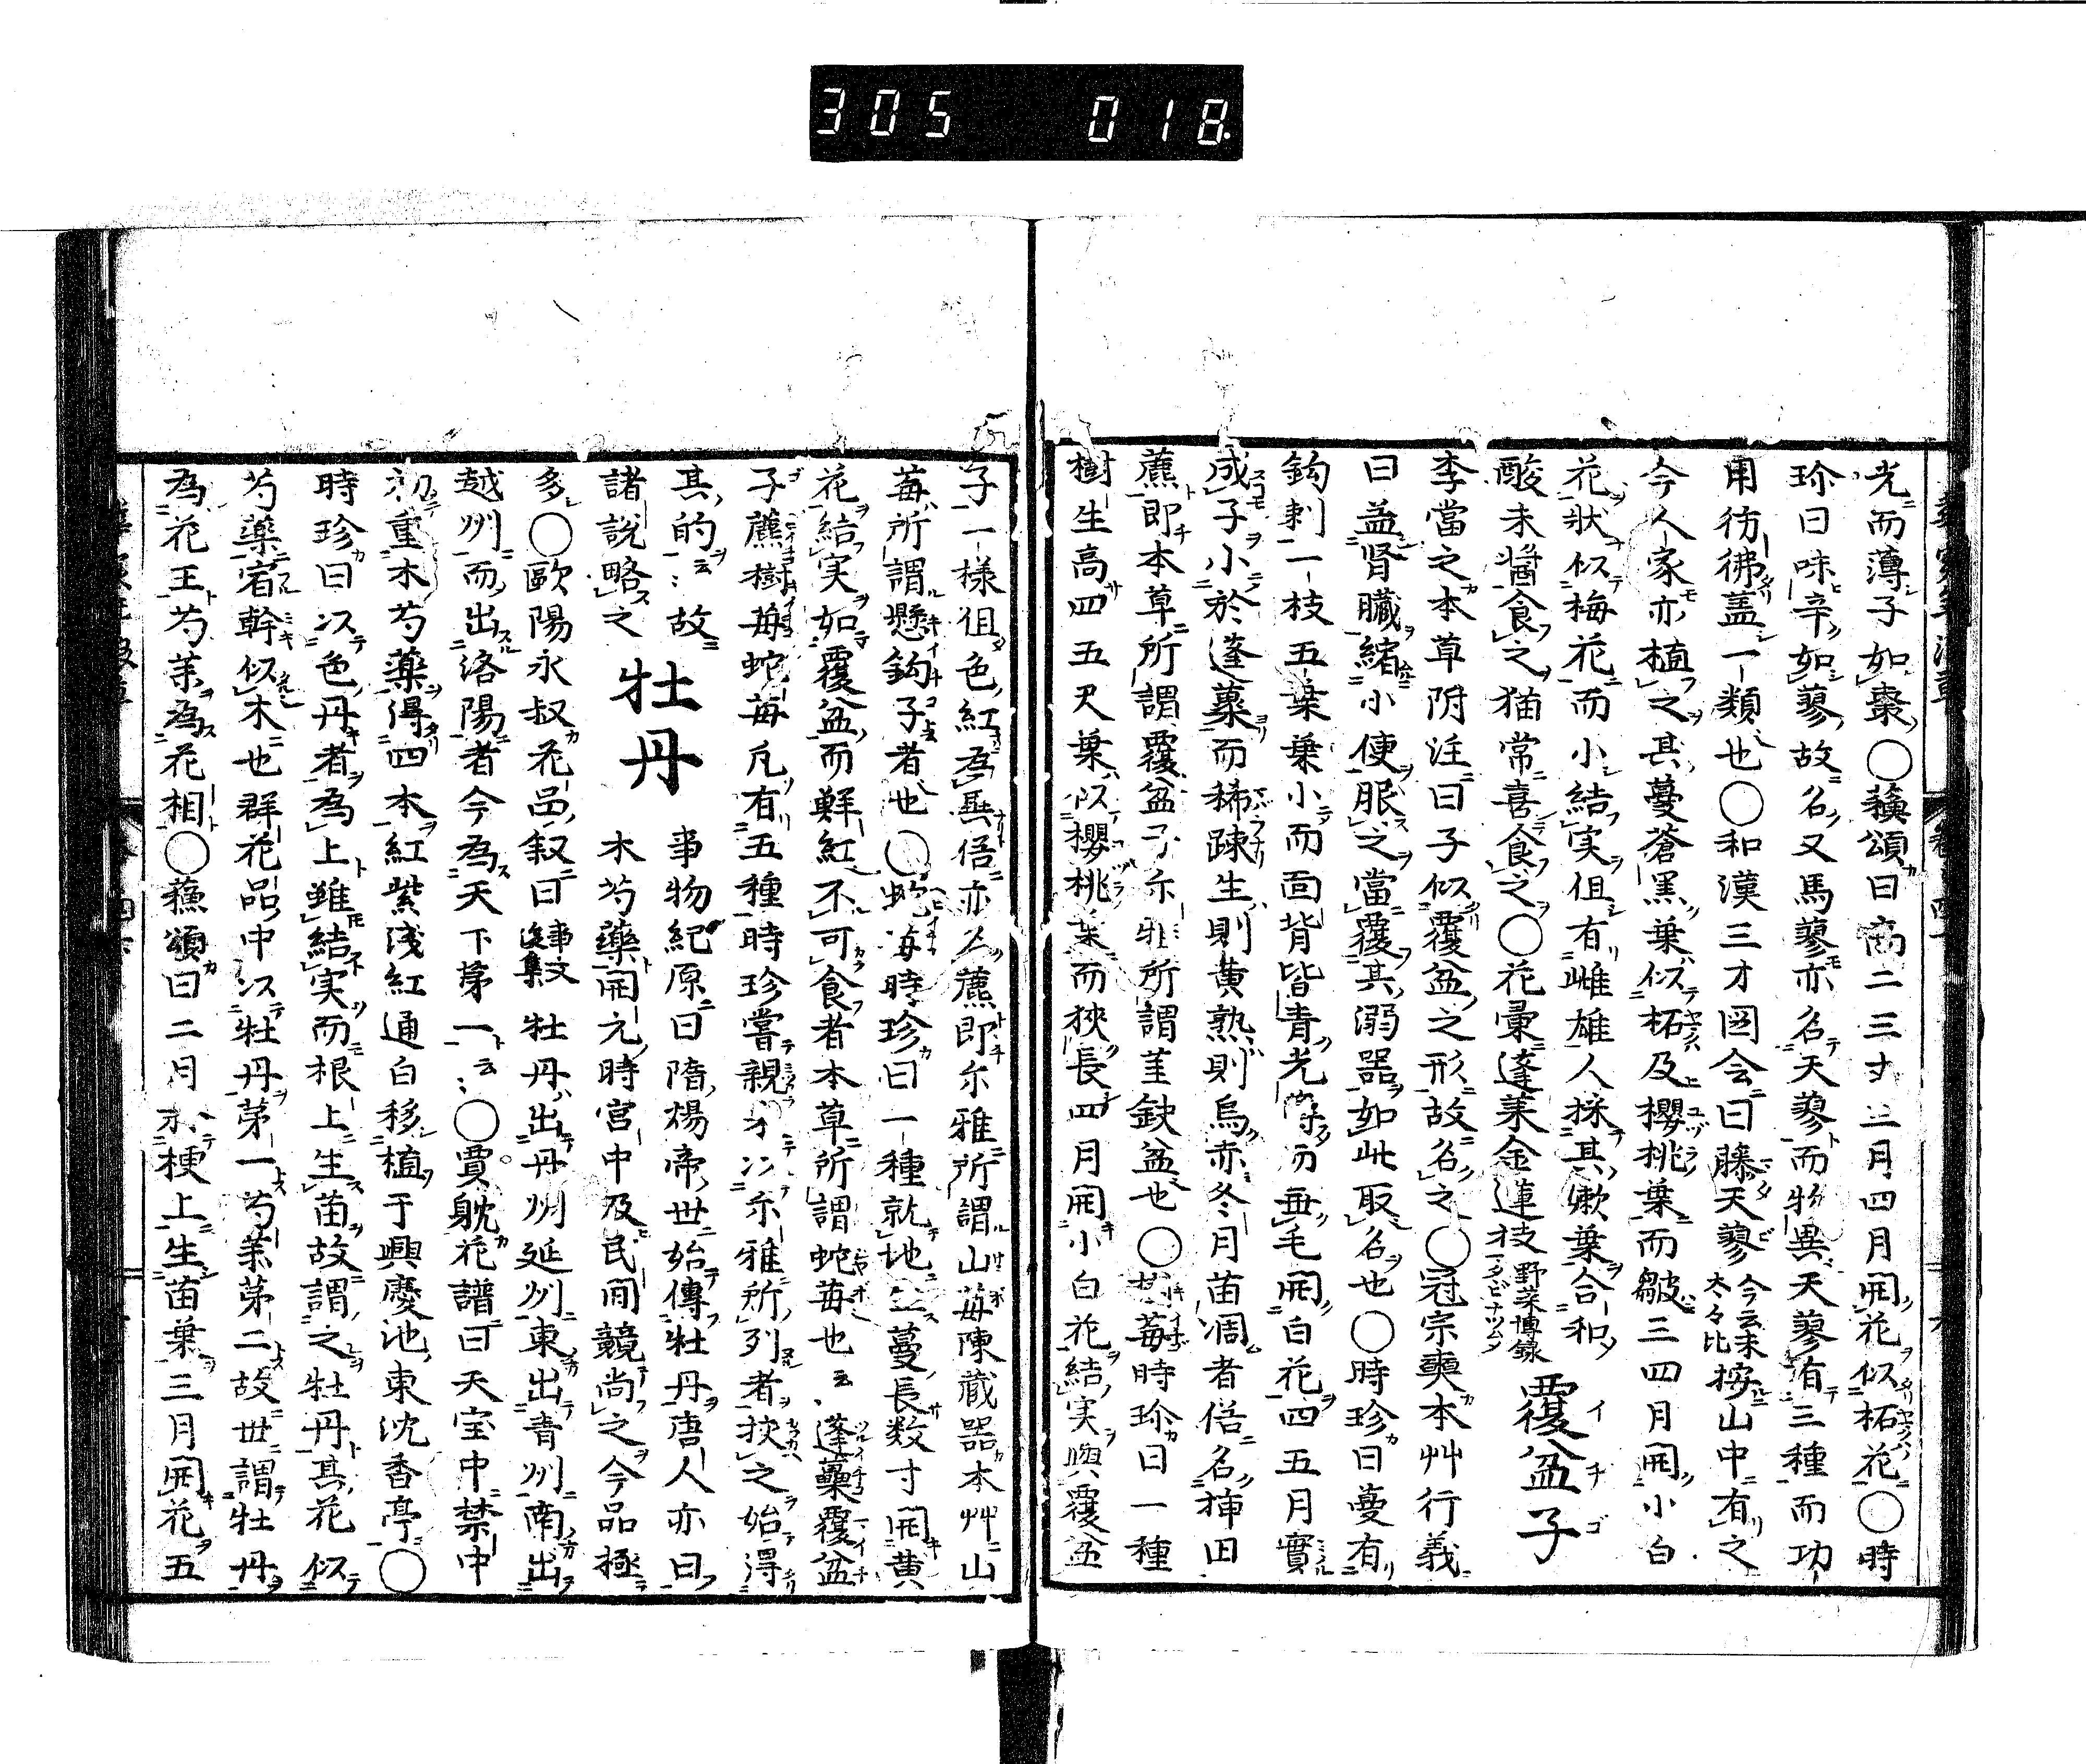 305 018
光而薄子如棗○蘓頌曰高二三寸三月四月開花似柘花○時
珍曰味辛如蓼故名又馬蓼亦名天蓼而物異天蓼有三種而功
用彷彿盖一類也○和漢三才圖会曰藤天蓼今云末太々比按山中有之
今人家亦植之其蔓蒼黒葉似柘及櫻桃葉而皺三四月開小白
花状似梅花而小結实但有雌雄人採其嫩葉合和
酸未醤食之猫常喜食之○花彙蓬莱金蓮枝野菜博録 覆盆子
李當之本草附注曰子似覆盆之形故名之○冠宗奭本艸行義
曰益肾臓縮小便服之當覆其溺器如此取名也○時珍曰蔓有
鈎刺一枝五葉葉小而面背皆青光而無毛開白花四五月實
成子小於蓬藟而稀踈生則黄熟則烏赤冬月苗凋者俗名挿田
藨即本草所謂覆盆子尒雅所謂茥缺盆也○樹莓時珍曰一種
樹生高四五尺葉似櫻桃葉而狹長四月開小白花結实與覆盆
子一様徂色紅為異俗亦名藨即尒雅所謂山莓陳藏器本艸山
莓所謂懸鈎子者也○蛇莓時珍曰一種就地生蔓長数寸開黄
花結实如覆盆而鮮紅不可食者本草所謂蛇莓也云、蓬虆覆盆
子藨樹莓蛇莓凡有五種時珍嘗親以尒雅所列者挍之始得
其的云〻故 事物紀原曰隋煬帝世始傳牡丹唐人亦曰
諸説略之 牡丹 木芍藥開元時宮中及民間競尚之今品極
多○歐陽永叔花品叙曰事文後集牡丹出丹州延州東出青州南出
越州而出洛陽者今為天下第一云〻○賈躭花譜曰天宝中禁中
初重木芍藥得四本紅紫浅紅通白移植于興慶池東沈香亭○
時珍曰以色丹者為上雖結实而根上生苗故謂之牡丹其花似
芍藥宿幹似木也群花品中以牡丹第一芍薬第二故世謂牡丹
為花王芍薬為花相○蘓頌曰二月於梗上生苗葉三月開花五